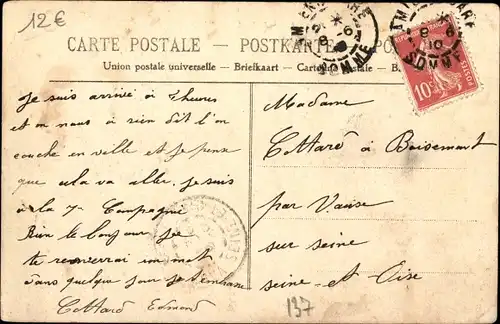 12€
CARTE POSTALE – POSTKARTE – PO
Union postale universelle – Briefkaart – Carto postale – B
AMIENS GARE
8 - 6
10
SOMME
10c
POSTES
Je suis arrivé à 2 heures
et on nous a rien dit l'on
couche en ville et je pense
que cela va aller. je suis
à la 7e Compagnie
Bien le bonjour je
te renverrai un mot
dans quelque jour je t'embrasse
Cottard Edmond
Madame
Cottard à Boisemont
par Vaux
sur seine
seine-et-Oise
137